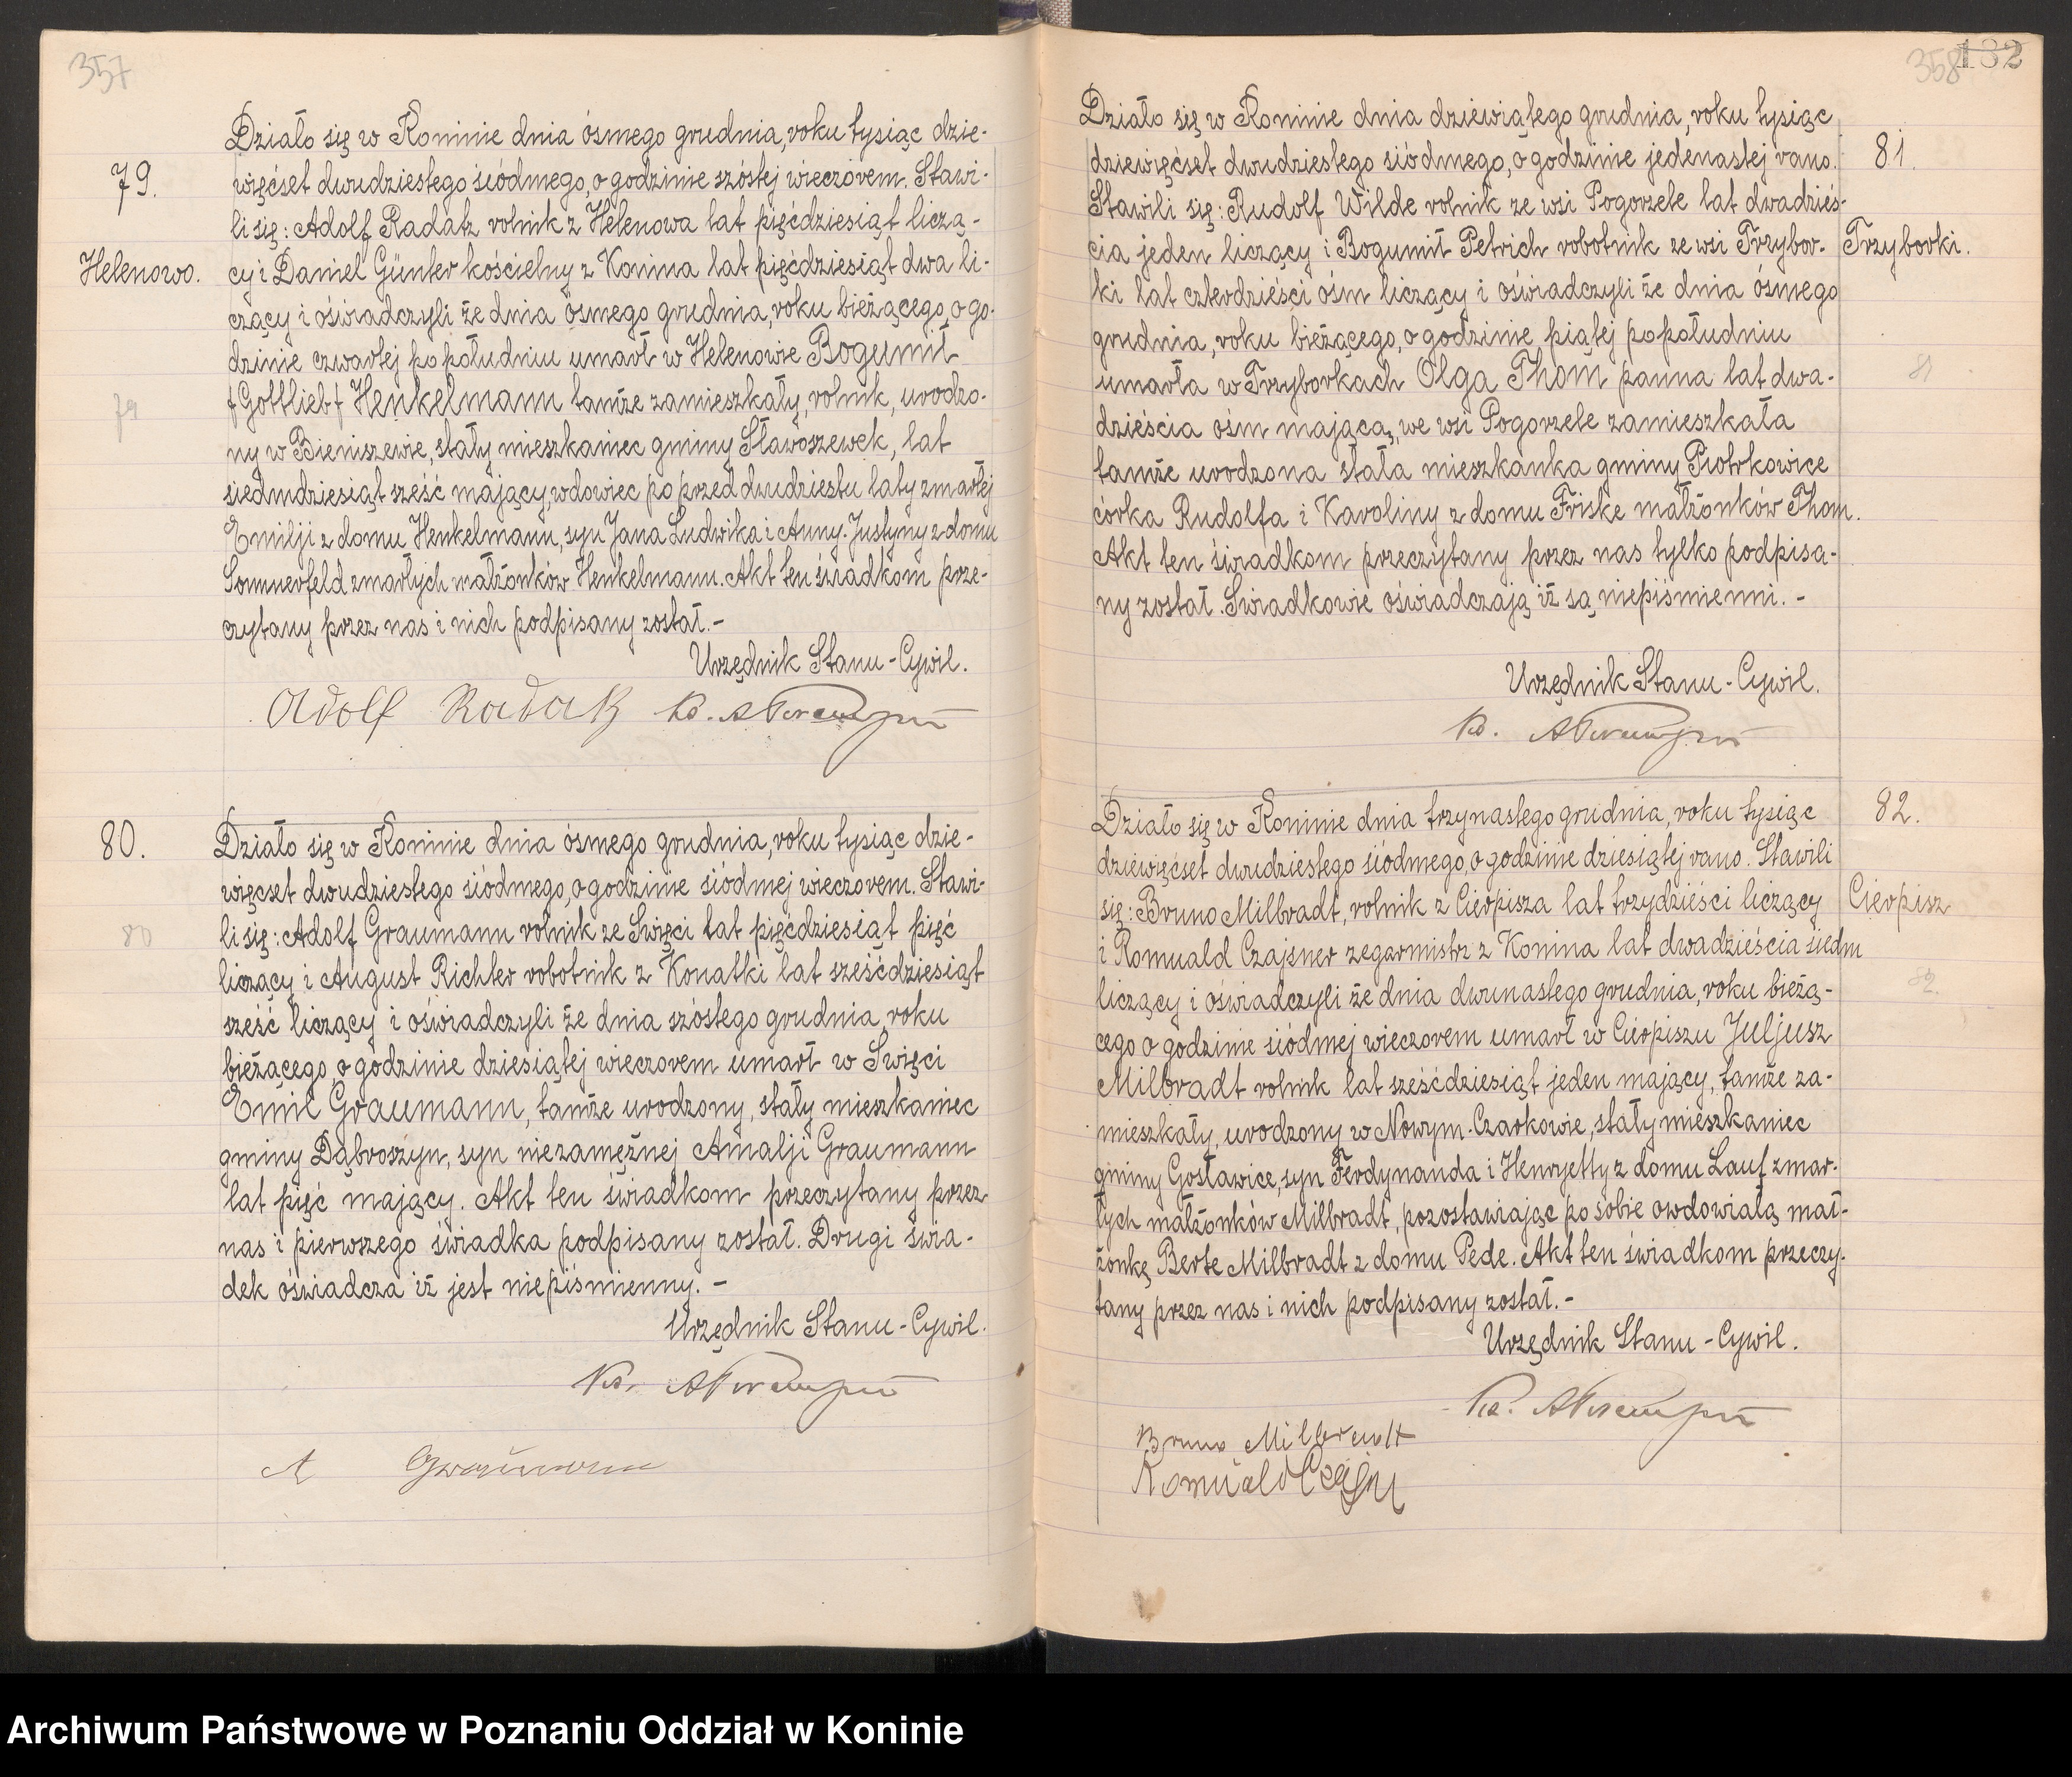 357
79.
Helenowo.
79
Działo się w Koninie dnia ósmego grudnia, roku tysiąc dzie-
więćset dwudziestego siódmego, o godzinie szóstej wieczorem. Stawi-
li się: Adolf Radatz rolnik z Helenowa lat pięćdziesiąt liczą-
cy i Daniel Günter kościelny z Konina lat pięćdziesiąt dwa li-
czący i oświadczyli że dnia ósmego grudnia, roku bieżącego, o go-
dzinie czwartej po południu umarł w Helenowie Bogumił
(Gottlieb) Henkelmann tamże zamieszkały, rolnik, urodzo-
ny w Bieniszewie, stały mieszkaniec gminy Sławoszewek, lat
siedmdziesiąt sześć mający, wdowiec po przed dwudziestu laty zmarłej
Emilji z domu Henkelmann, syn Jana Ludwika i Anny-Justyny z domu
Sommerfeld zmarłych małżonków Henkelmann. Akt ten świadkom prze-
czytany przez nas i nich podpisany został.-
Urzędnik Stanu-Cywil.
Adolf Radatz Ks.
80.
80
Działo się w Koninie dnia ósmego grudnia, roku tysiąc dzie-
więcset dwudziestego siódmego, o godzinie siódmej wieczorem. Stawi-
li się: Adolf Graumann rolnik ze Swięci lat pięćdziesiąt pięć
liczący i August Richter robotnik z Konatki lat sześćdziesiąt
sześć liczący i oświadczyli że dnia szóstego grudnia, roku
bieżącego, o godzinie dziesiątej wieczorem umarł w Swięci
Emil Graumann, tamże urodzony, stały mieszkaniec
gminy Dąbroszyn, syn niezamężnej Amalji Graumann
lat pięć mający. Akt ten świadkom przeczytany przez
nas i pierwszego świadka podpisany został. Drugi świa-
dek oświadcza iż jest niepiśmienny.-
Urzędnik Stanu-Cywil.
Ks.
A Graumann
358 132
81.
Trzyborki.
81
Działo się w Koninie dnia dziewiątego grudnia, roku tysiąc
dziewięćset dwudziestego siódmego, o godzinie jedenastej rano.
Stawili się: Rudolf Wilde rolnik ze wsi Pogorzele lat dwadzieś-
cia jeden liczący i Bogumił Petrich robotnik ze wsi Trzybor-
ki lat czterdzieści ośm liczący i oświadczyli że dnia ósmego
grudnia, roku bieżącego, o godzinie piątej po południu
umarła w Trzyborkach Olga Thom panna lat dwa-
dzieścia ośm mająca, we wsi Pogorzele zamieszkała
tamże urodzona stała mieszkanka gminy Piotrkowice
córka Rudolfa i Karoliny z domu Friske małżonków Thom.
Akt ten świadkom przeczytany przez nas tylko podpisa-
ny został. Swiadkowie oświadczają iż są niepiśmienni.-
Urzędnik Stanu-Cywil.
Ks.
82.
Cierpisz
82.
Działo się w Koninie dnia trzynastego grudnia, roku tysiąc
dziewięćset dwudziestego siódmego, o godzinie dziesiątej rano. Stawili
się: Bruno Milbradt, rolnik z Cierpisza lat trzydzieści liczący
i Romuald Czajsner zegarmistrz z Konina lat dwadzieścia siedm
liczący i oświadczyli że dnia dwunastego grudnia, roku bieżą-
cego o godzinie siódmej wieczorem umarł w Cierpiszu Juljusz
Milbradt rolnik lat sześćdziesiąt jeden mający, tamże za-
mieszkały, urodzony w Nowym-Czarkowie, stały mieszkaniec
gminy Gosławice, syn Ferdynanda i Henryetty z domu Lauf zmar-
łych małżonków Milbradt, pozostawiając po sobie owdowiałą mał-
żonkę Berte Milbradt z domu Pede. Akt ten świadkom przeczy-
tany przez nas i nich podpisany został.-
Urzędnik Stanu-Cywil.
Ks.
Bruno Milbradt
Romuald
Archiwum Państwowe w Poznaniu Oddział w Koninie